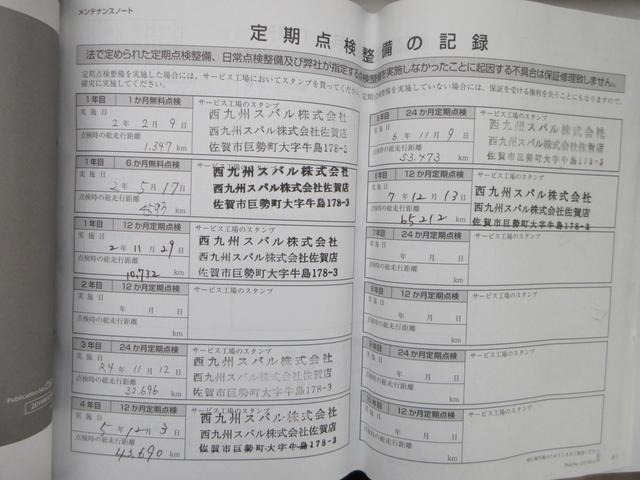 メンテナンスノート
定期点検整備の記録
法で定められた定期点検整備、日常点検整備及び弊社が指定する点検整備を実施しなかったことに起因する不具合は保証修理致しません。
定期点検整備を実施した場合には、サービス工場においてスタンプを貰ってください。定期点検整備を実施していない場合には、保証を受ける権利を失うことにもなりますので、
確実に実施してください。
1年目 1か月無料点検 サービス工場のスタンプ
実施日
2年 2月 9日
点検時の総走行距離
1,347 km
西九州スバル株式会社
西九州スバル株式会社佐賀店
佐賀市巨勢町大字牛島178-3
1年目 6か月無料点検 サービス工場のスタンプ
実施日
2年 5月 17日
点検時の総走行距離
4593 km
西九州スバル株式会社
西九州スバル株式会社佐賀店
佐賀市巨勢町大字牛島178-3
1年目 12か月定期点検 サービス工場のスタンプ
実施日
2年 11月 29日
点検時の総走行距離
10,732 km
西九州スバル株式会社
西九州スバル株式会社佐賀店
佐賀市巨勢町大字牛島178-3
2年目 12か月定期点検 サービス工場のスタンプ
実施日
年 月 日
点検時の総走行距離
km
3年目 24か月定期点検 サービス工場のスタンプ
実施日
R4年 11月 12日
点検時の総走行距離
32,696 km
西九州スバル株式会社
西九州スバル株式会社佐賀店
佐賀市巨勢町大字牛島178-3
4年目 12か月定期点検 サービス工場のスタンプ
実施日
5年 12月 3日
点検時の総走行距離
43,690 km
西九州スバル株式会社
西九州スバル株式会社佐賀店
佐賀市巨勢町大字牛島178-3
5年目 24か月定期点検 サービス工場のスタンプ
実施日
6年 11月 9日
点検時の総走行距離
53,473 km
西九州スバル株式会社
西九州スバル株式会社佐賀店
佐賀市巨勢町大字牛島178-3
6年目 12か月定期点検 サービス工場のスタンプ
実施日
7年 12月 13日
点検時の総走行距離
65,212 km
西九州スバル株式会社
西九州スバル株式会社佐賀店
佐賀市巨勢町大字牛島178-3
7年目 24か月定期点検 サービス工場のスタンプ
実施日
年 月 日
点検時の総走行距離
km
8年目 12か月定期点検 サービス工場のスタンプ
実施日
年 月 日
点検時の総走行距離
km
9年目 24か月定期点検 サービス工場のスタンプ
実施日
年 月 日
点検時の総走行距離
km
12か月定期点検 サービス工場のスタンプ
実施日
年 月 日
点検時の総走行距離
km
Publication No.